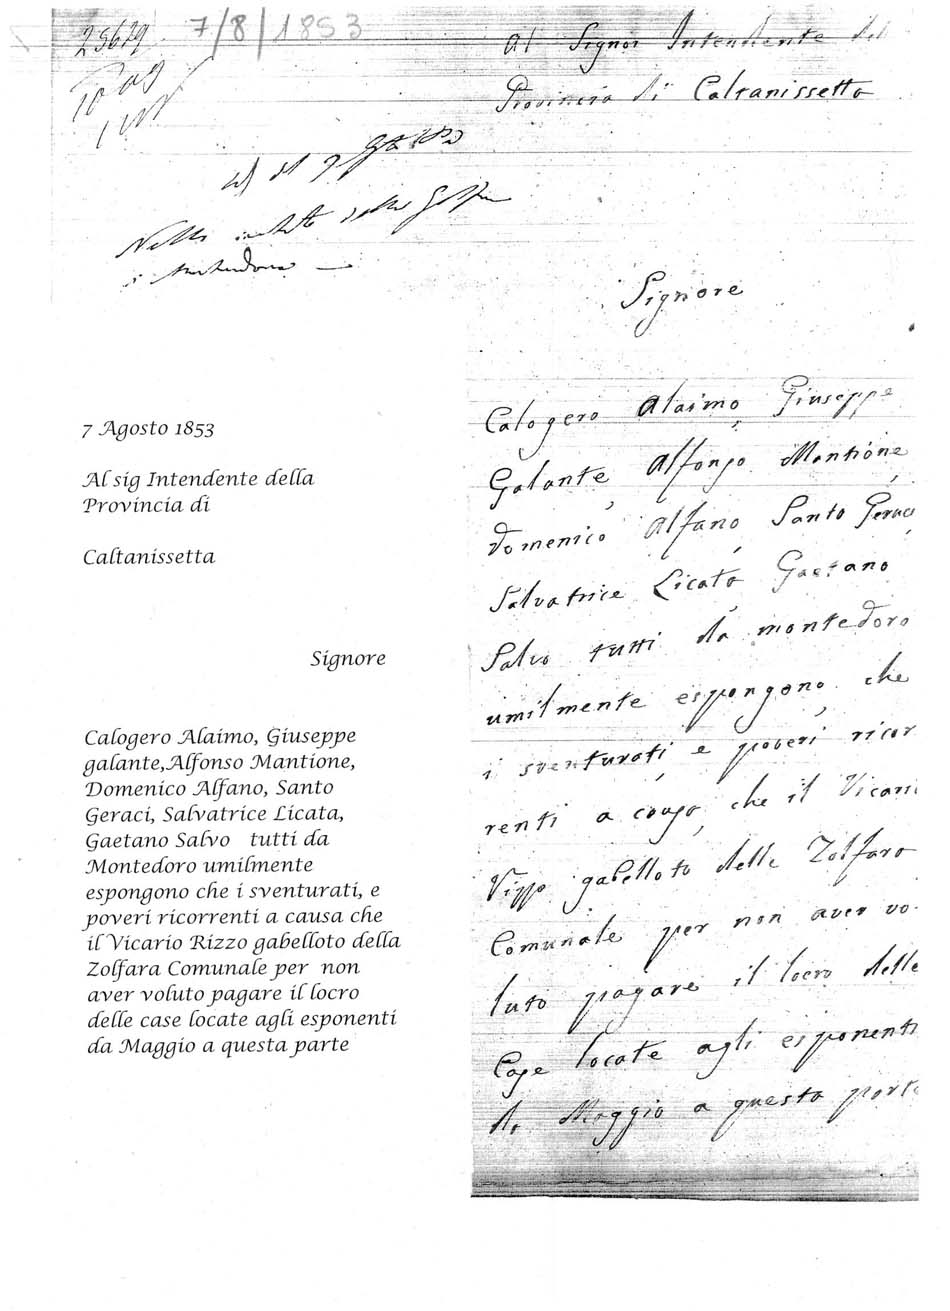 25679
7/8/1853
Al Signor Intendente del
Provincia di Caltanissetta
Signore
7 Agosto 1853
Al sig Intendente della
Provincia di
Caltanissetta
Signore
Calogero Alaimo, Giuseppe
galante,Alfonso Mantione,
Domenico Alfano, Santo
Geraci, Salvatrice Licata,
Gaetano Salvo tutti da
Montedoro umilmente
espongono che i sventurati, e
poveri ricorrenti a causa che
il Vicario Rizzo gabelloto della
Zolfara Comunale per non
aver voluto pagare il locro
delle case locate agli esponenti
da Maggio a questa parte
Calogero Alaimo, Giuseppe
Galante, Alfonzo Mantione,
Domenico Alfano, Santo Geraci,
Salvatrice Licata, Gaetano
Salvo tutti da montedoro
umilmente espongono, che
i sventurati, e poveri ricor
renti a causa, che il Vicari
Rizzo gabelloto delle Zolfara
Comunale per non aver vo-
luto pagare il locro delle
Case locate agli esponenti
da Maggio a questa parte